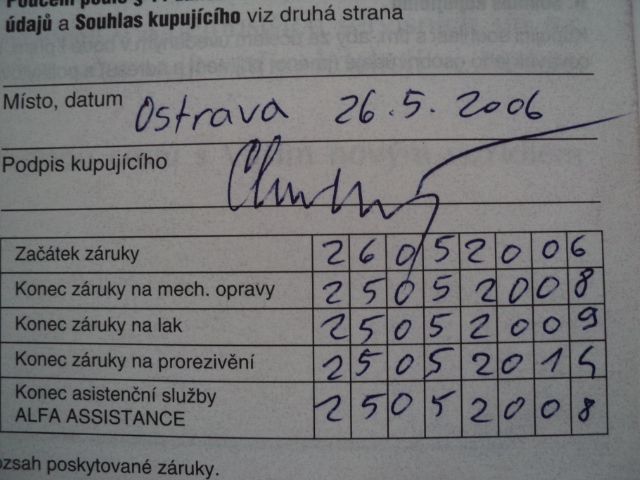 údajů a Souhlas kupujícího viz druhá strana
Místo, datum Ostrava 26.5.2006
Podpis kupujícího
Začátek záruky 26052006
Konec záruky na mech. opravy 25052008
Konec záruky na lak 25052009
Konec záruky na prorezivění 25052014
Konec asistenční služby
ALFA ASSISTANCE 25052008
ozsah poskytované záruky.